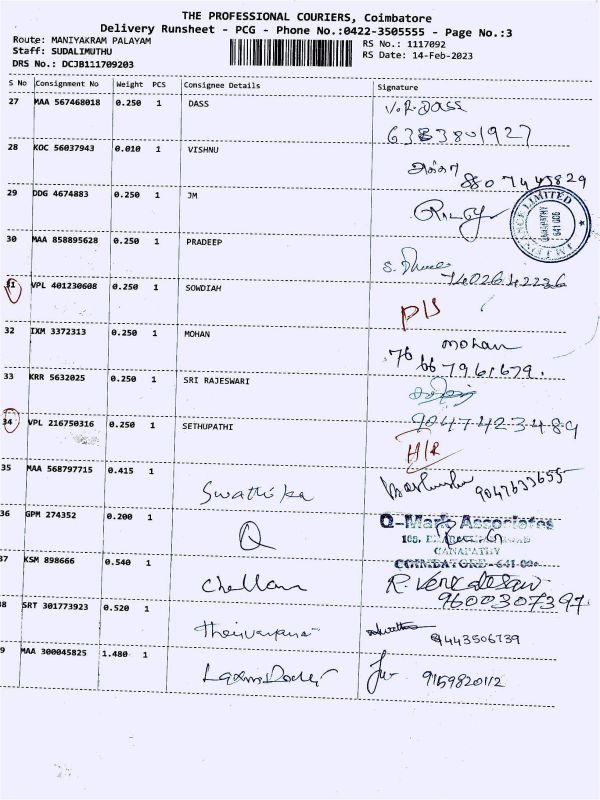 THE PROFESSIONAL COURIERS, Coimbatore
Delivery Runsheet - PCG - Phone No.:0422-3505555 - Page No.:3
Route: MANIYAKRAM PALAYAM RS No.: 1117092
Staff: SUDALIMUTHU RS Date: 14-Feb-2023
DRS No.: DCJB111709203
S No Consignment No Weight PCS Consignee Details Signature
27 MAA 567468018 0.250 1 DASS V.R. DASS
6383801927
28 KOC 56037943 0.010 1 VISHNU
8807445829
29 DDG 4674883 0.250 1 JM
GANAPATHY
30 MAA 858895628 0.250 1 PRADEEP
31 VPL 401230608 0.250 1 SOWDIAH
32 IXM 3372313 0.250 1 MOHAN mohan
76 667961679.
33 KRR 5632025 0.250 1 SRI RAJESWARI
34 VPL 216750316 0.250 1 SETHUPATHI 9047423489
H/R
35 MAA 568797715 0.415 1 Swathika 9047633655
36 GPM 274352 0.200 1 Q Q-Mark Associates
GANAPATHY
COIMBATORE - 641 006
37 KSM 898666 0.540 1 Chellam R. Venkadesan
9600307397
38 SRT 301773923 0.520 1 9443506739
39 MAA 300045825 1.480 1 9159820112